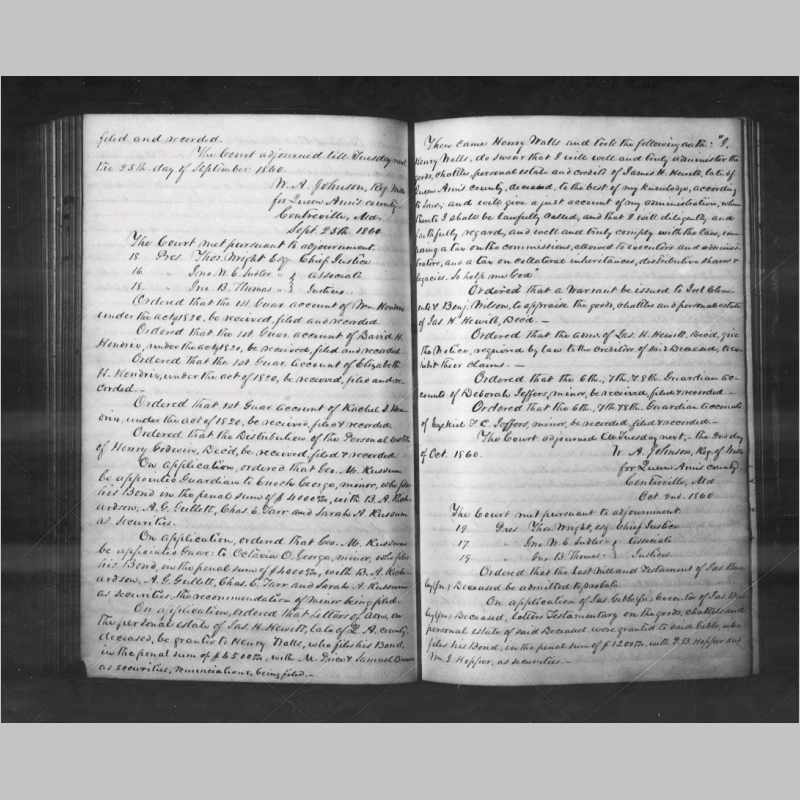 filed and recorded.
The Court adjourned till Tuesday next
the 25th day of September 1860.
W. A. Johnson, Reg. Wills
for Queen Ann's county
Centreville, Md.
Sept. 25th 1860
The Court met pursuant to adjournment.
18 Pres. Thos. Wright Esq Chief Justice
16 " Jno. W. E. Sudler " } Associate
18 " Jno. B. Thomas " } Justices
Ordered that the 1st Guar. account of Wm. Hendrix
under the act of 1820, be received, filed and recorded.
Ordered that the 1st Guar. account of David H.
Hendrix, under the act of 1820, be received, filed and recorded
Ordered that the 1st Guar. account of Elizabeth
H. Hendrix, under the act of 1820, be received, filed and re-
corded.—
Ordered that 1st Guar. account of Rachel J. Hen-
drix, under the act of 1820, be received, filed & recorded
Ordered that the Distribution of the Personal Estate
of Henry Dec'd, be received, filed & recorded
On application, ordered that Geo. M. Russum
be appointed Guardian to Enoch George, minor, who files
his Bond in the penal sum of $4000, with B. A. Rich-
ardson, A. G. Gullett, Chas. E. Tarr and Sarah A. Russum
as securities.
On application, ordered that Geo. M. Russum
be appointed Guar. to Octavia O. George, minor, who files
his Bond, in the penal sum of $4000, with B. A. Rich-
ardson, A. G. Gullett, Chas. E. Tarr and Sarah A. Russum
as securities, the recommendation of minor being filed.
On application, ordered that Letters of Adm. on
the personal estate of Jas. H. Hewitt, late of Q. A. county
deceased, be granted to Henry Walls, who files his Bond,
in the penal sum of $4500, with M. & Samuel
as securities, renunciations, being filed.—
Then came Henry Walls and took the following oath: "I,
Henry Walls, do swear that I will well and truly administer the
goods, chattles, personal estate and credits of James H. Hewitt, late of
Queen Ann's county, deceased, to the best of my knowledge, according
to law; and will give a just account of my administration, when
thereto I shall be lawfully called, and that I will diligently and
faithfully regard, and well and truly comply with the laws, im-
posing a tax on the commissions, allowed to executors and adminis-
trators, and a tax on collateral inheritances, distributive shares &
legacies. So help me God."
Ordered that a Warrant be issued to Joel Clem-
ents & Benj. Wilson, to appraise the goods, chattles and personal estate
of Jas. H. Hewitt, Dec'd.—
Ordered that the adm. of Jas. H. Hewitt, Dec'd, give
the Notice, required by law to the creditors of said Deceased, to ex-
hibit their claims.—
Ordered that the 6th, 7th, & 8th Guardian ac-
counts of Deborah Jeffers, minor, be received, filed & recorded.—
Ordered that the 6th, 7th & 8th Guardian accounts
of Ezekiel T. C. Jeffers, minor, be recorded, filed & recorded.—
The Court adjourned till Tuesday next,— the 2nd day
of Oct. 1860.
W. A. Johnson, Reg. of Wills
for Queen Ann's county.
Centreville, Md
Oct. 2nd. 1860
The Court met pursuant to adjournment.
19 Pres Thos. Wright, esq Chief Justice
17 " Jno W. E. Sudler } Associate
19 " Jno. B. Thomas } Justices
Ordered that the Last Will and Testament of Jas.
Deceased be admitted to probate
On application of Jas. executor of Jas.
Deceased, Letters Testamentary on the goods, chattels and
personal estate of said Deceased were granted to said who
files his Bond, in the penal sum of $1200, with P. B. Hopper and
Wm. J. Hopper, as securities.—